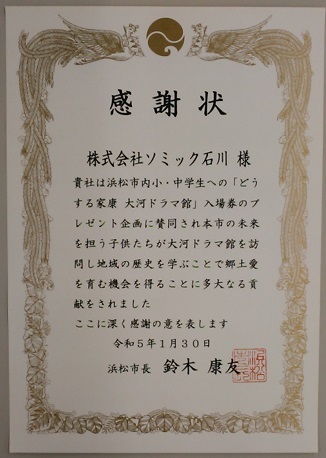 感謝状
株式会社ソミック石川 様
貴社は浜松市内小・中学生への「どう
する家康 大河ドラマ館」入場券のプ
レゼント企画に賛同され本市の未来
を担う子供たちが大河ドラマ館を訪
問し地域の歴史を学ぶことで郷土愛
を育む機会を得ることに多大なる貢
献をされました
ここに深く感謝の意を表します
令和5年1月30日
浜松市長 鈴木 康友